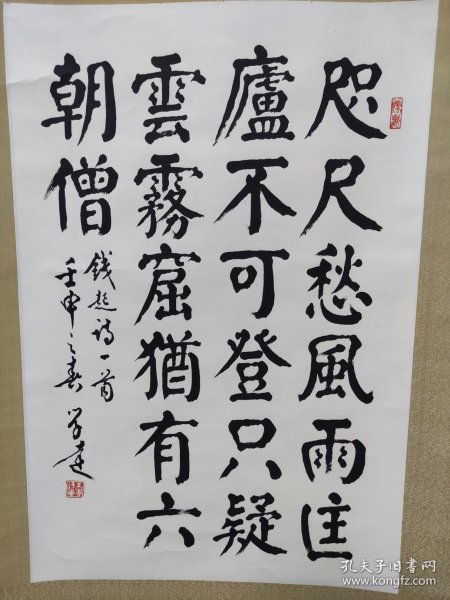 咫尺愁風雨匡
廬不可登只疑
雲霧窟猶有六
朝僧
钱起诗一首
壬申之春
孔夫子旧书网
www.kongfz.com